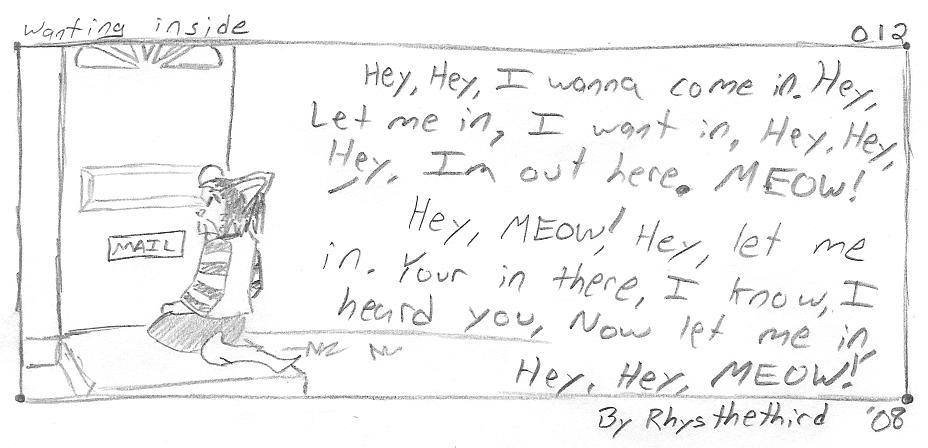 Wanting inside
012
Hey, Hey, I wanna come in. Hey,
Let me in, I want in, Hey, Hey,
Hey, Im out here. MEOW!
Hey, MEOW! Hey, let me
in. Your in there, I know, I
heard you, Now let me in
Hey, Hey, MEOW!
MAIL
By Rhysthethird '08